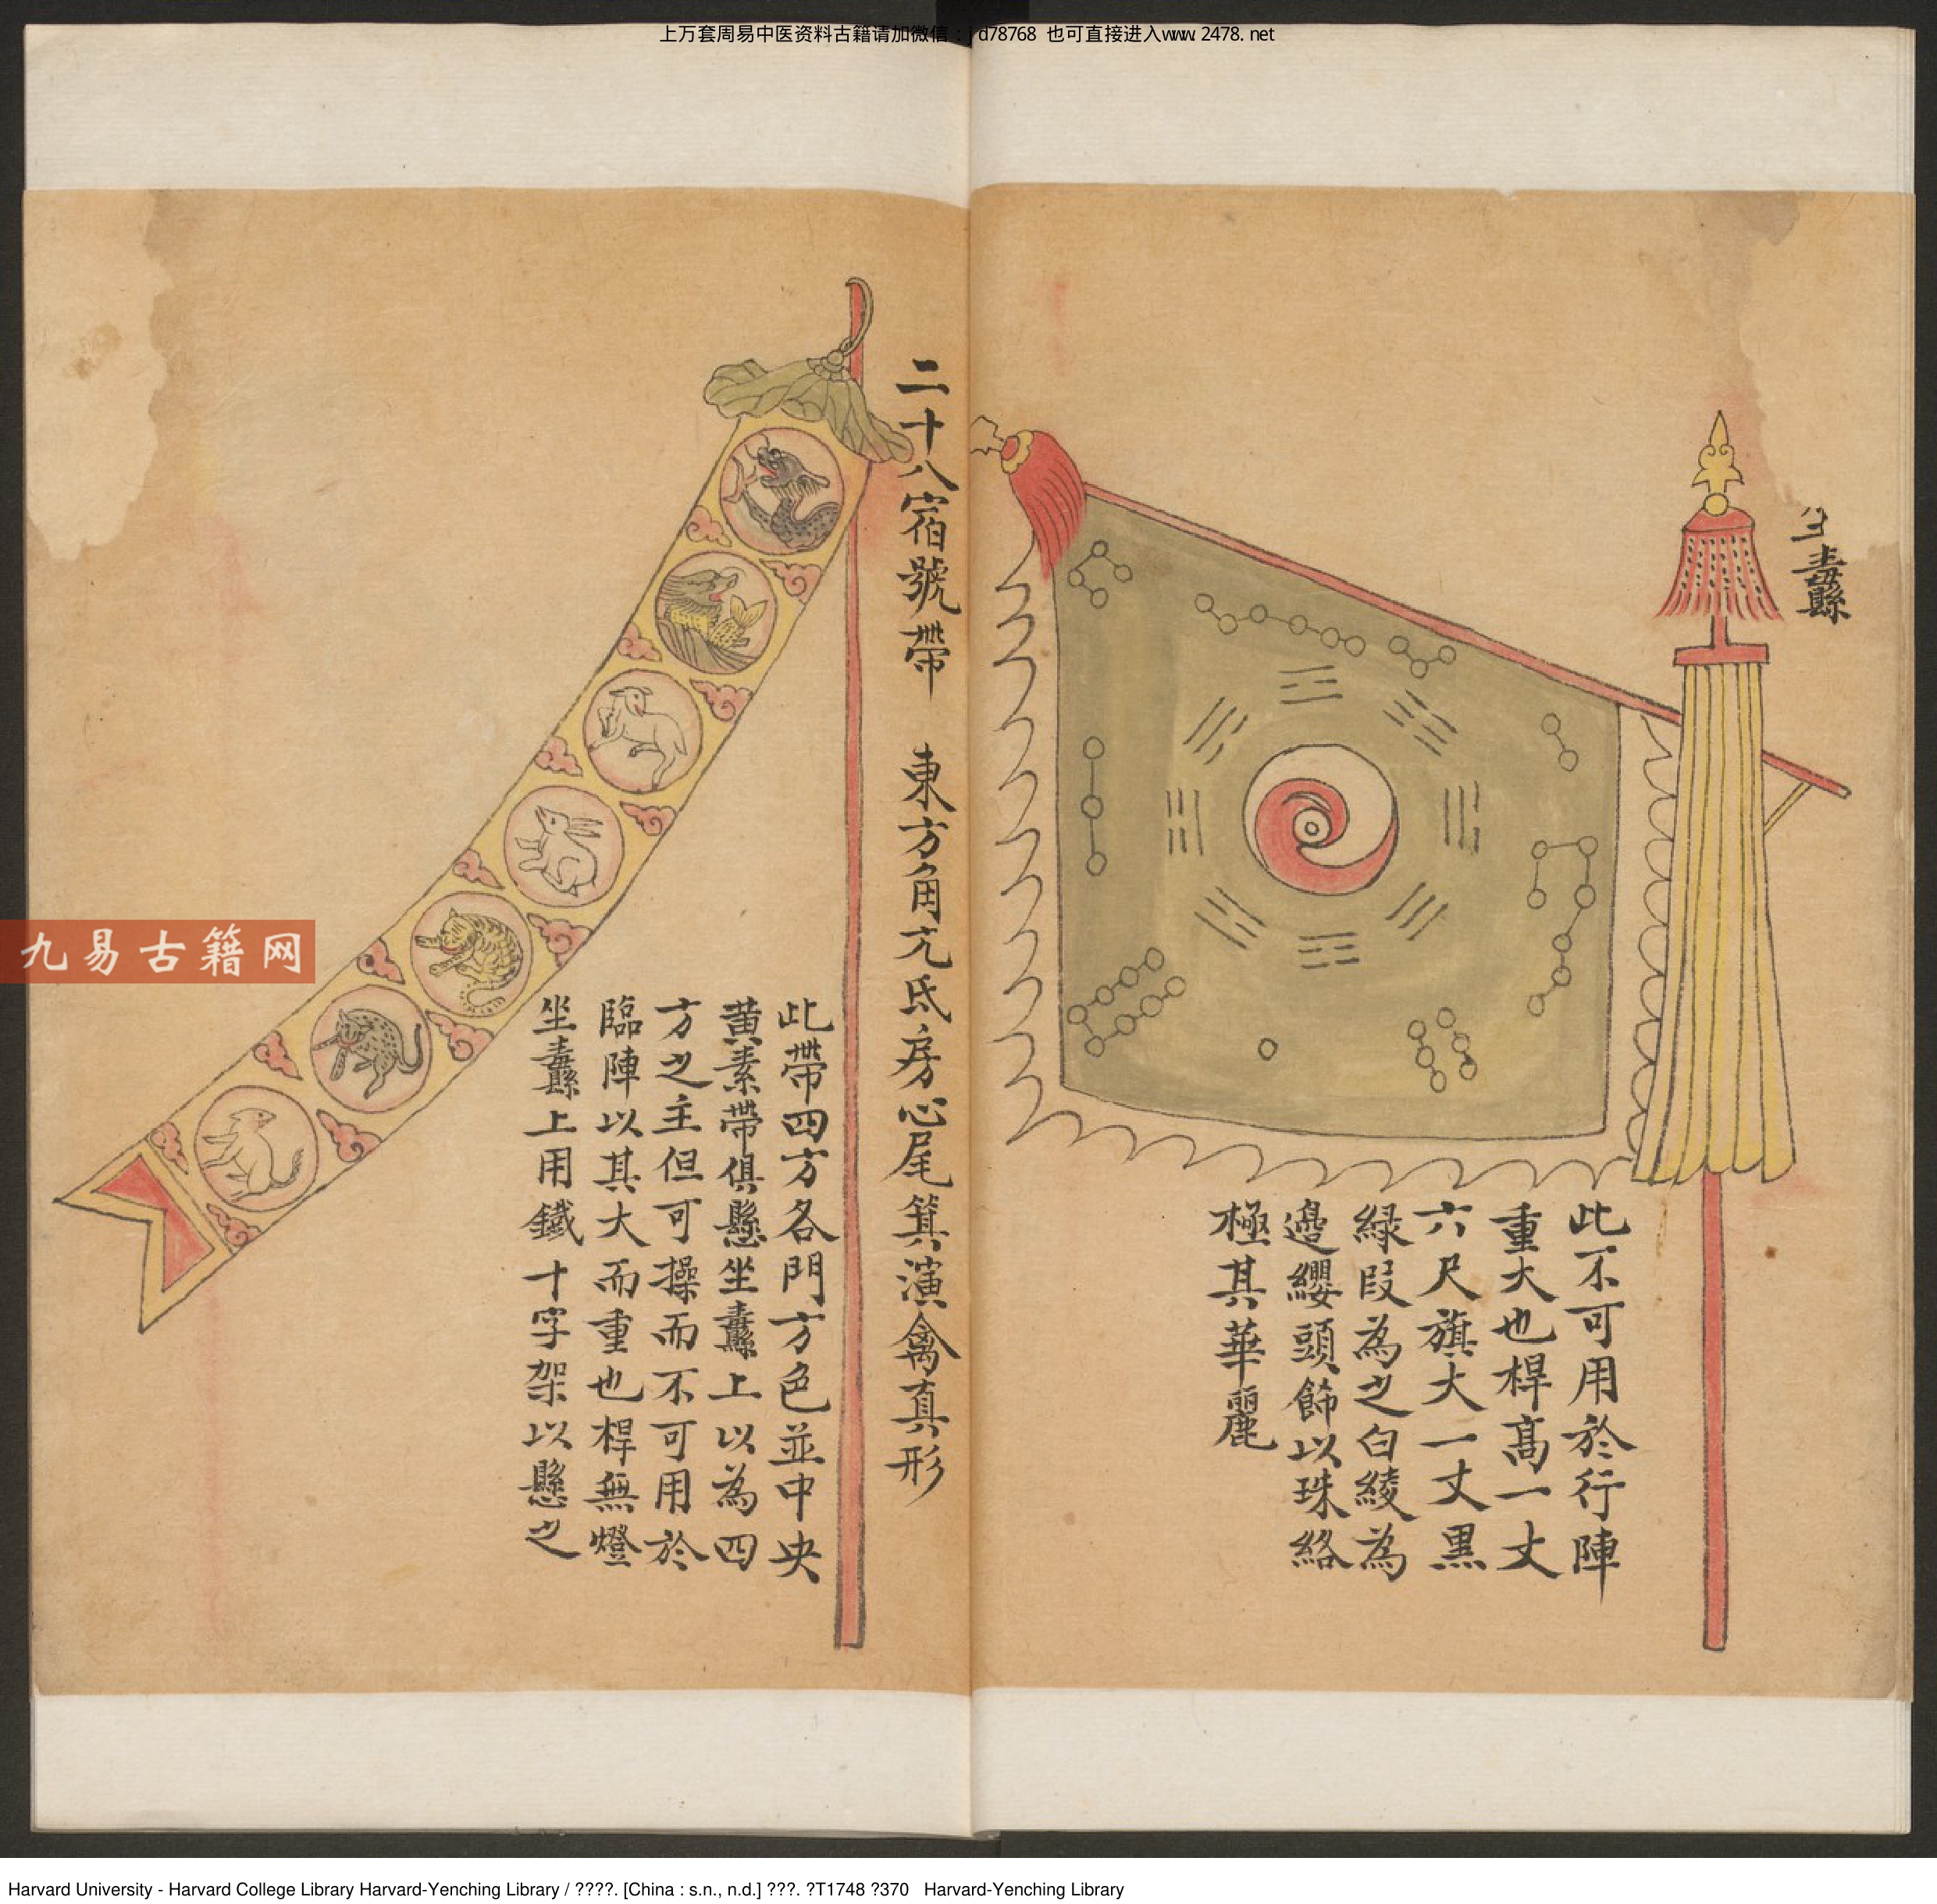 上万套周易中医资料古籍请加微信：jd78768 也可直接进入www.2478.net
纛
此不可用於行陣
重大也桿高一丈
六尺旗大一丈黒
緑段為之白綾為
邊纓頭飾以珠絡
極其華麗
二十八宿號帶 東方角亢氐房心尾箕演禽真形
此帶四方各門方色並中央
黄素帶俱懸坐纛上以為四
方之主但可操而不可用於
臨陣以其大而重也桿無燈
坐纛上用鐵十字架以懸之
九易古籍网
Harvard University - Harvard College Library Harvard-Yenching Library / ????. [China : s.n., n.d.] ???. ?T1748 ?370 Harvard-Yenching Library